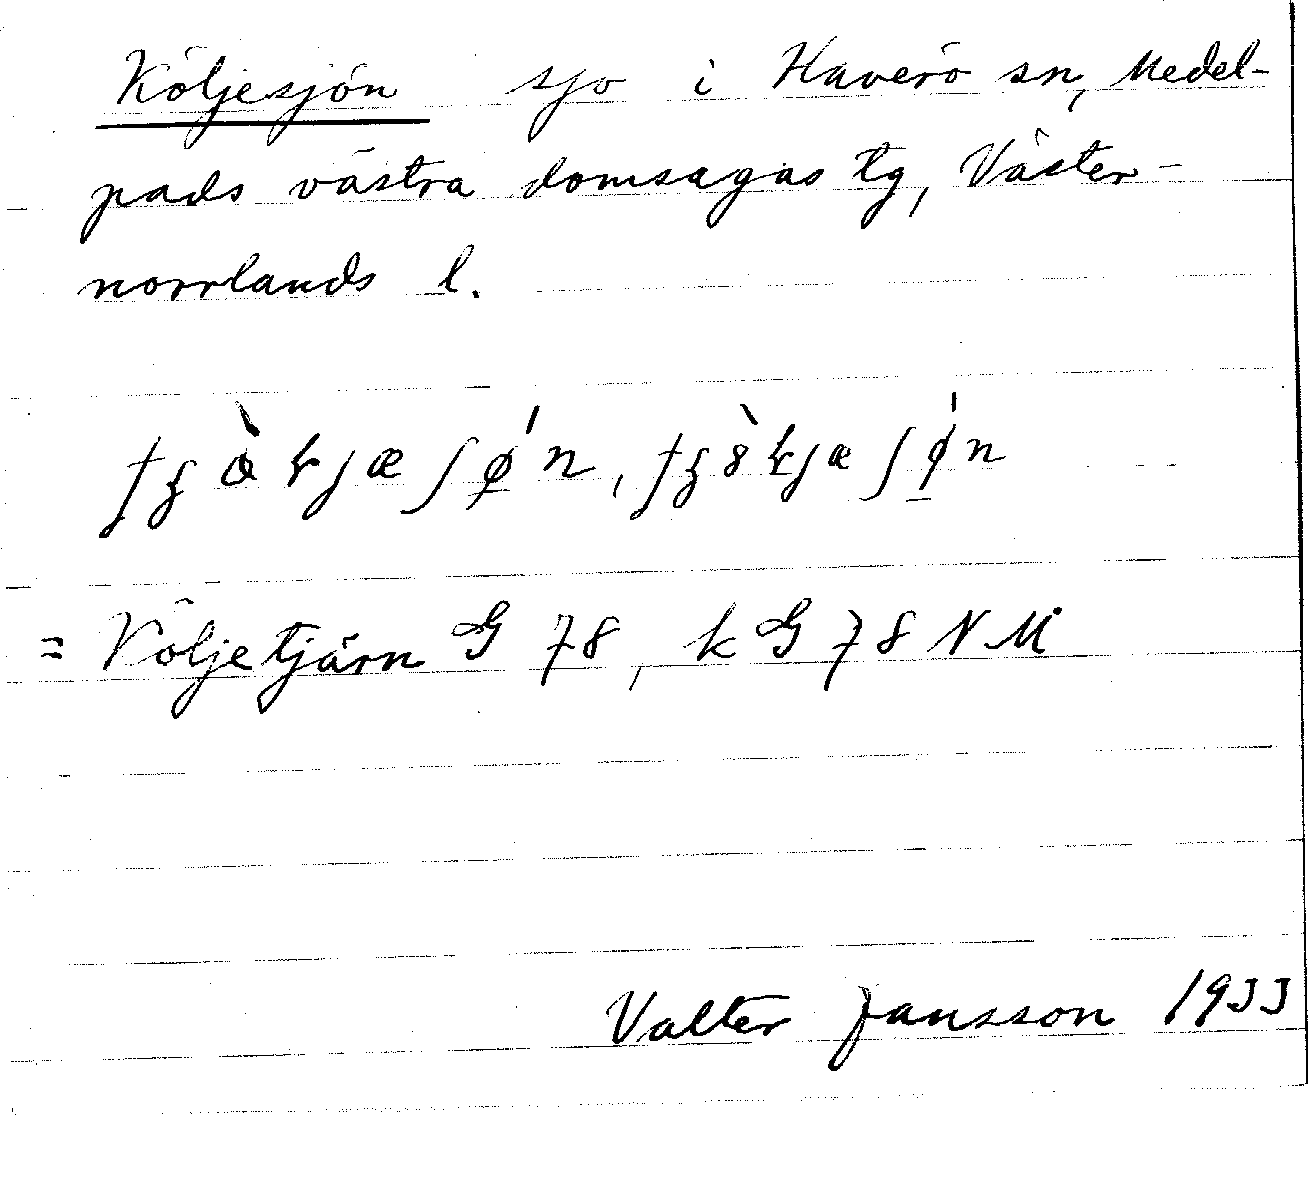 Köljesjön sjö i Haverö sn, Medel-
pads västra domsagas tg, Väster-
norrlands l.
= Köljetjärn G 78, k G 78 N M
Valter Jansson 1933